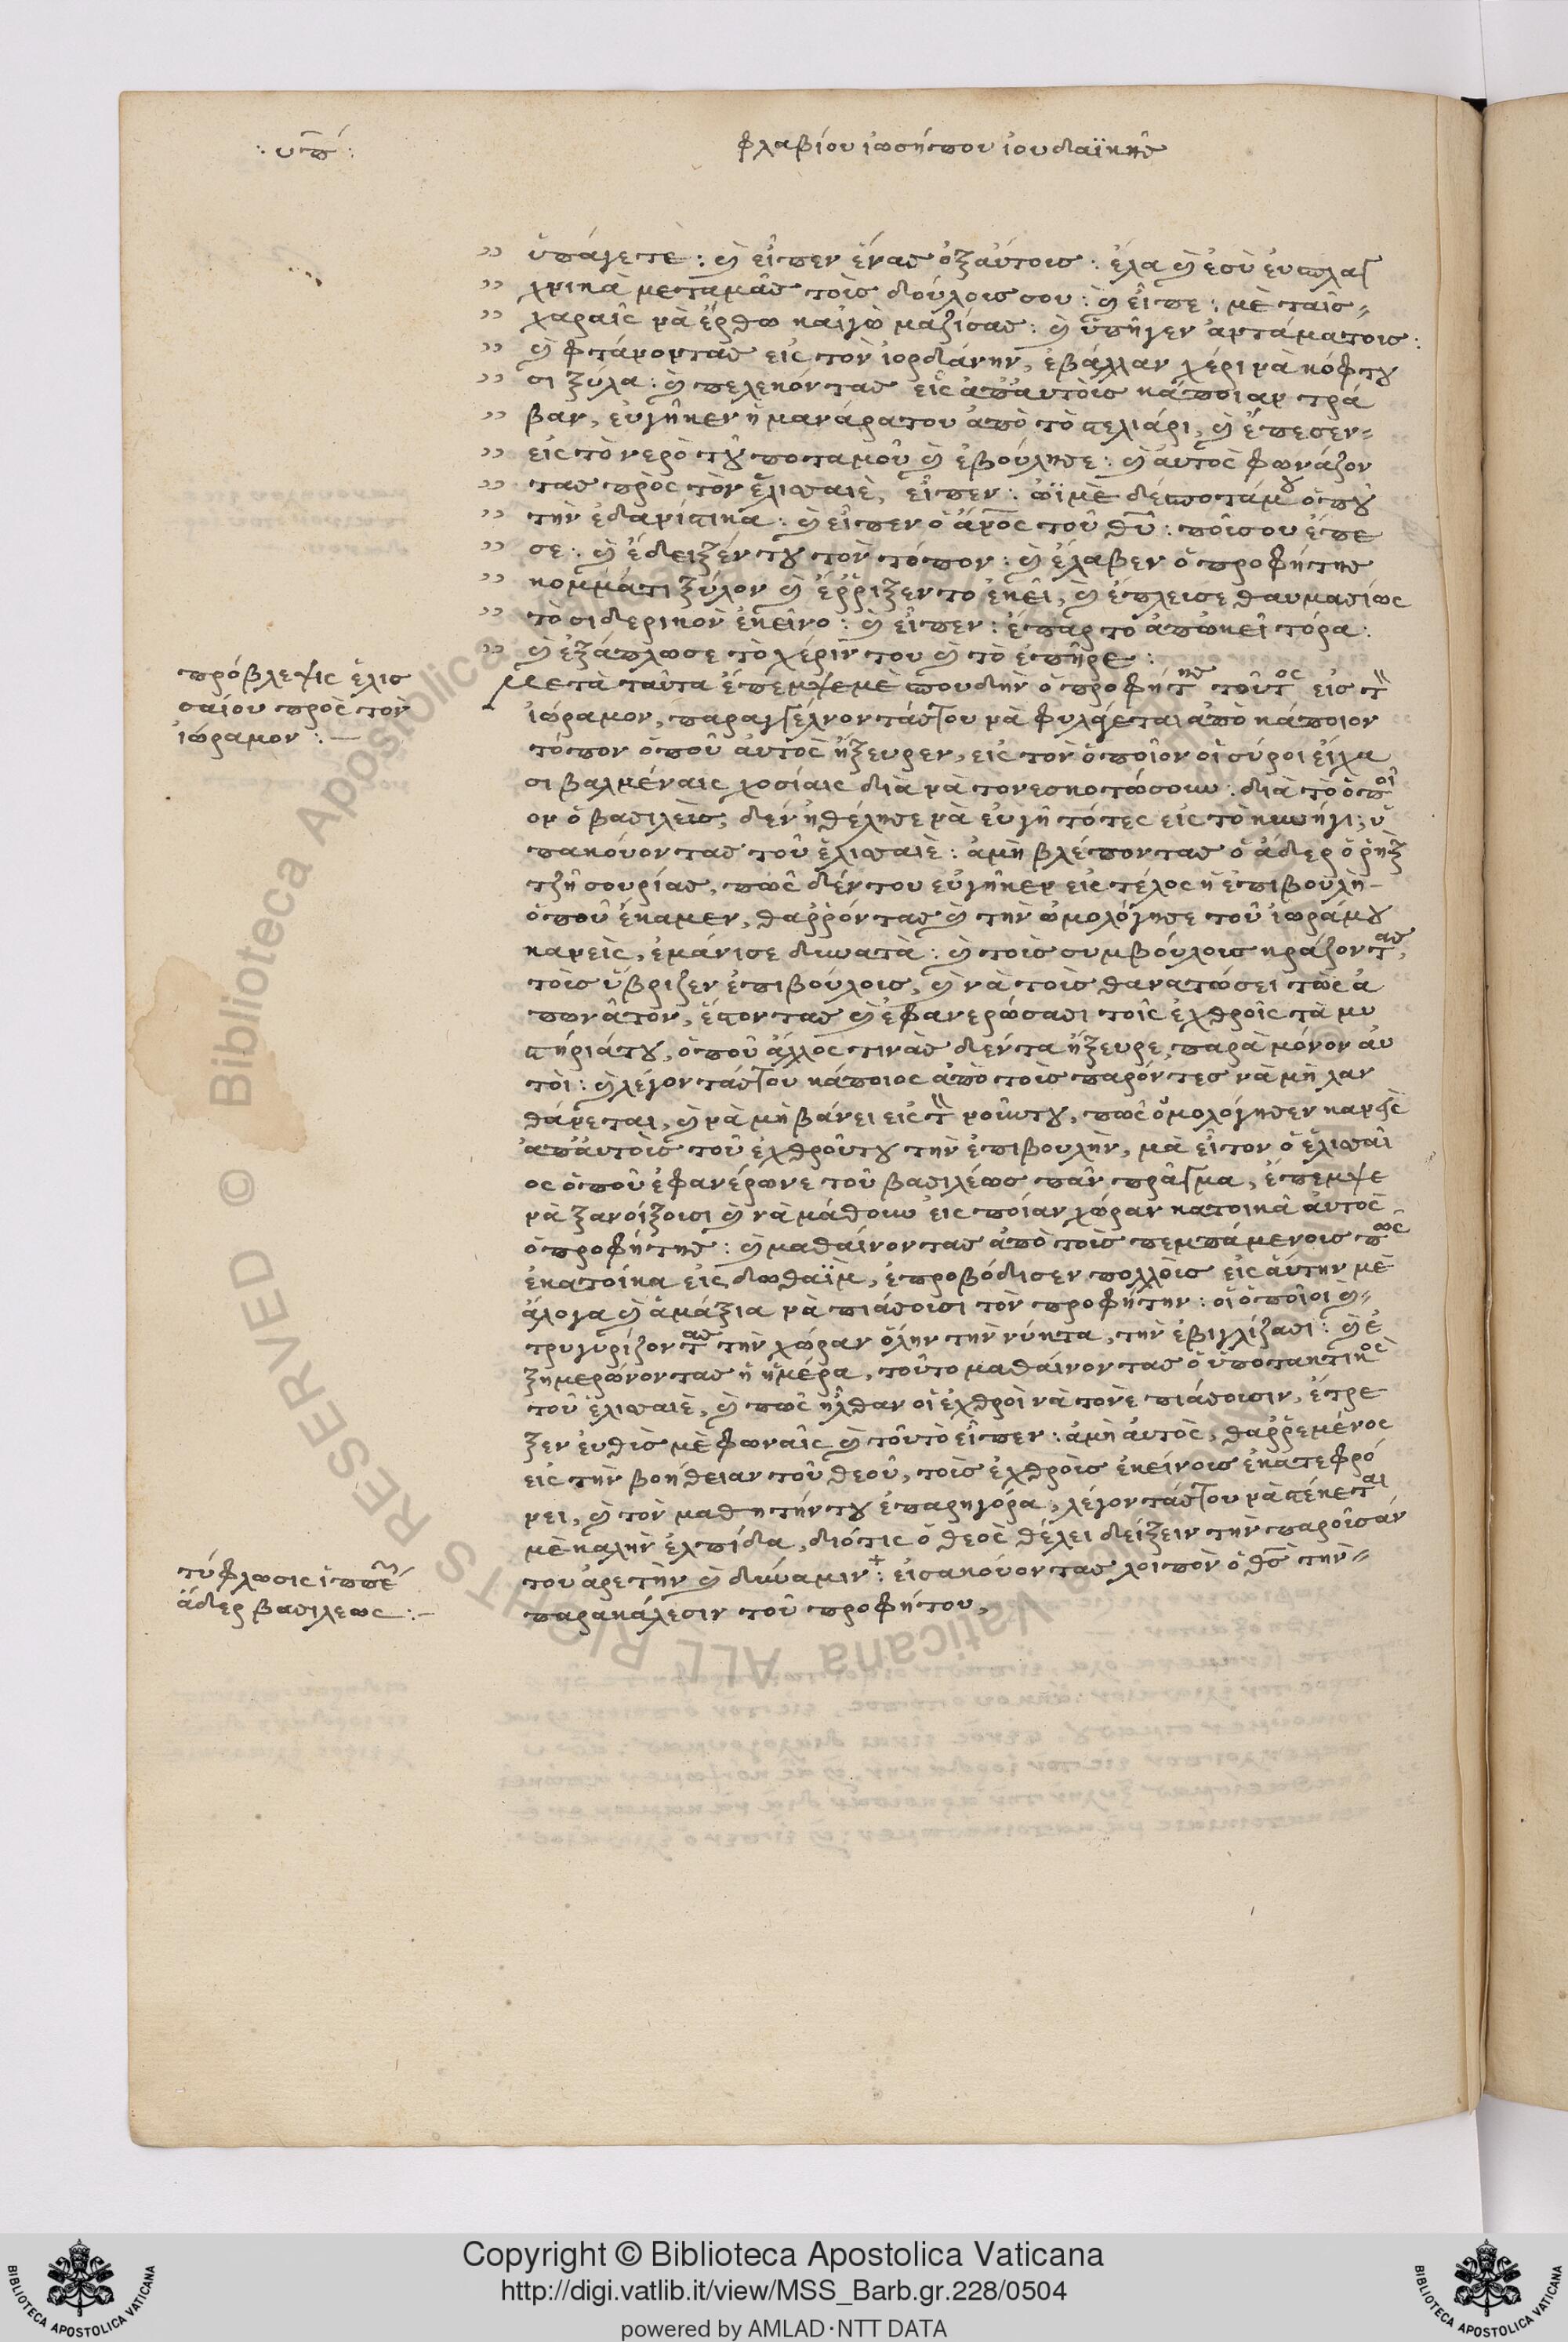 : υπ´ :
φλαβίου ἰωσήπου ἰουδαϊκῆς
ὑπάγετε : καὶ εἶπεν ἕνας ὀξαύτοις : ἔλα καὶ ἐσὺ ἐυσπλαγ
χνικὰ μεταμᾶς τοῖς δούλοις σου : καὶ εἶπε : μὲ ταῖς
χαραῖς νὰ ἔρθω καὶγὼ μαζίσας : καὶ ὑπῆγεν ἀντάματοις :
καὶ φτάνοντας εἰς τὸν ἰορδάνην, ἐβάλλαν χέρι νὰ κόφτου
σι ξύλα : καὶ πελεκόντας εἷς ἀπ' αυτοῖς κάποιαν τρά
βαν, ἐυγῆκεν ἡ μανάρατου ἀπὸ τὸ στελιάρι, καὶ ἔπεσεν
εἰς τὸ νερὸ τοῦ ποταμοῦ καὶ ἐβούλησε : καὶ ἀυτὸς φωνάζον
τας πρὸς τὸν ἐλισσαιὲ, εἶπεν : ὠϊμὲ δέσποτάμου ὁποῦ
τὴν ἐδανίστικα : καὶ εἶπεν ὁ ἄνος τοῦ θῦ : ποῖσου ἔπε
σε : καὶ ἔδειξέν του τὸν τόπον : καὶ ἔλαβεν ὁ προφήτης
κομμάτι ξύλον καὶ ἔρριξεν το ἐκεῖ, καὶ ἔπλεισε θαυμασίως
τὸ σιδερικὸν ἐκεῖνο : καὶ εἶπεν : ἔπαρ το ἀπῶκεῖ τόρα :
καὶ ἐξάπλωσε τὸ χέριν του καὶ τὸ ἐπῆρε :
πρόβλεψις ἐλισ
σαίου πρὸς τὸν
ἰώραμον : —
Μετὰ ταῦτα ἔπεμψεμὲ σπουδὴν ὁ προφήτης τοῦτος εἰς τὸν
ἰώραμον, παραγγέλνοντάςτου νὰ φυλάγεται ἀπὸ κάποιον
τόπον ὁποῦ ἀυτὸς ἤξευρεν, εἰς τὸν ὁποῖον οἱ σύροι εἶχα
σι βαλμέναις χοσίαις διὰ νὰ τονεσκοτώσουν : διὰ τὸ ὁποῖ
ον ὁ βασιλεὺς, δὲν ἠθέλησε νὰ εὐγῆ τότες εἰς τὸ κυνήγι, ὑ
πακούοντας τοῦ ἐλισσαιὲ : ἀμὴ βλέποντας ὁ ἄδερ ὁ ρὴξ
τζῆ σουρίας, πῶς δέν του εὐγῆκεν εἰς τέλος ἡ ἐπιβουλὴ
ὁποῦ ἔκαμεν, θαῤῥόντας καὶ τὴν ὡμολόγησε τοῦ ἰωράμου
κανεὶς, ἐμάνισε δυνατὰ : καὶ τοῖς συμβούλοις κράζοντας,
τοῖς ὕβριζεν ἐπιβούλοις, καὶ νὰ τοῖς θανατώσει τῶς ἀ
πονᾶτον, ἔστοντας καὶ ἐφανερώσασι τοῖς ἐχθροῖς τὰ μυ
στήριάτου, ὁποῦ ἄλλος τινὰς δέντα ἤξευρε, παρὰ μόνον ἀυ
τοὶ : καὶ λέγοντάςτου κάποιος ἀπὸ τοῖς παρόντες νὰ μὴ λαν
θάνεται, καὶ νὰ μὴ βάνει εἰς τὸν νοῦντου, πῶς ὁμολόγησεν κανεὶς
ἀπἀυτοῖς τοῦ ἐχθροῦντου τὴν ἐπιβουλὴν, μὰ εἶτον ὁ ἐλισσαῖ
ος ὁποῦ ἐφανέρωνε τοῦ βασιλέως πᾶν πρᾶγμα, ἔπεμψε
νὰ ξανοίξοισι καὶ νὰ μάθουν εἰς ποίαν χώραν κατοικᾶ ἀυτὸς
ὁ προφήτης : καὶ μαθαίνοντας ἀπὸ τοῖς πεμπάμενοις πῶς
ἐκατοίκα εἰς δωθαϊμ, ἐπροβόδισεν πολλοῖς εἰς ἄυτην μὲ
ἄλογα καὶ ἁμάξια νὰ πιάσοισι τὸν προφήτην : οἱ ὁποῖοι καὶ
τρυγυρίζοντας τὴν χώραν ὅλην τὴν νύκτα, τὴν ἐβιγλίζασι : καὶ ἐ
ξημερώνοντας ἡ ἡμέρα, τοῦτο μαθαίνοντας ὁ ὑποτακτικὸς
τοῦ ἐλισσαιὲ, καὶ πῶς ἦλθαν οἱ ἐχθροὶ νὰ τονὲ πιάσοισιν, ἔτρε
ξεν ἐυθὶς μὲ φωναῖς καὶ τοῦτὸ εἶπεν : ἀμὴ ἀυτὸς, θαῤῥεμένος
εἰς τὴν βοήθειαν τοῦ θεοῦ, τοῖς ἐχθροῖς ἐκείνοις ἐκατεφρό
νει, καὶ τὸν μαθητήντου ἐπαρηγόρα, λέγοντάςτου νὰ στέκεται
μὲ καλὴν ἐλπίδα, διότις ὁ θεὸς θέλει δείξειν τὴν παροῦσάν
του ἀρετὴν καὶ δύναμιν + : εἰσακούοντας λοιπὸν ὁ θς τὴν
παρακάλεσιν τοῦ προφήτου,
τύφλωσις ἱππέ
ἄδερ βασιλεως : –
Copyright © Biblioteca Apostolica Vaticana
http://digi.vatlib.it/view/MSS_Barb.gr.228/0504
powered by AMLAD·NTT DATA